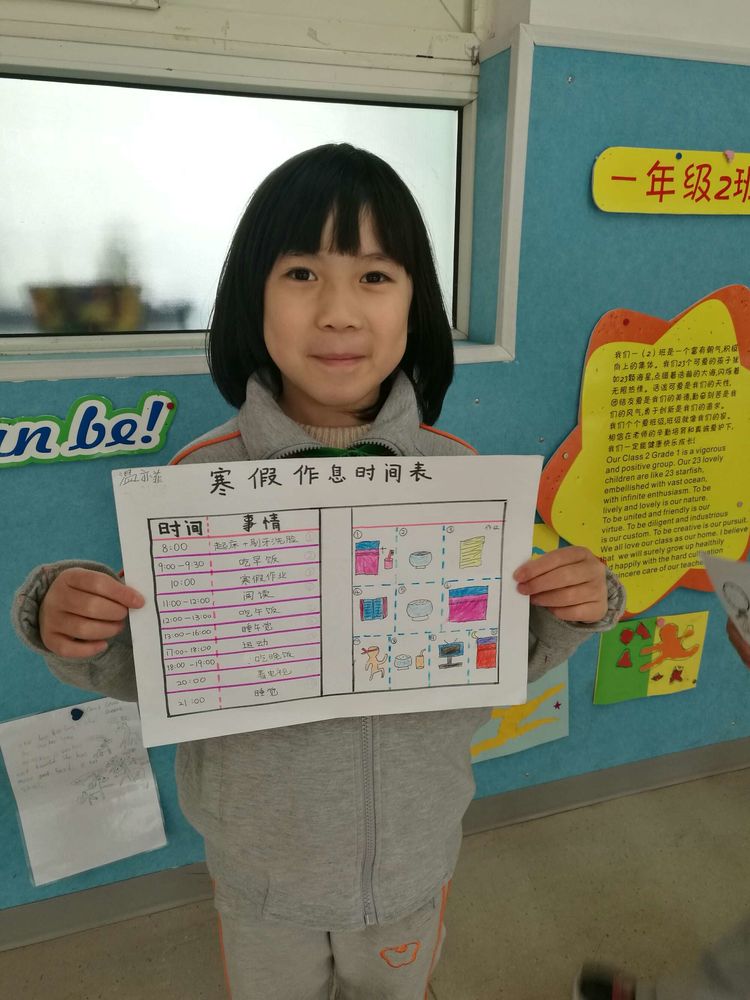 一年级2班
我们一（2）班是一个富有朝气，积极
向上的集体。我们23个可爱的孩子就
如23颗海星，点缀着浩瀚的大海，闪烁着
无限热情。活泼可爱是我们的天性，
团结友爱是我们的美德，勤奋刻苦是我
们的风气，勇于创新是我们的追求。
我们个个爱班级，班级就像我们的家。
相信在老师的辛勤培育和真诚爱护下，
我们一定能健康快乐成长！
Our Class 2 Grade 1 is a vigorous
and positive group. Our 23 lovely
children are like 23 starfish,
embellished with vast ocean,
with infinite enthusiasm. To be
lively and lovely is our nature.
To be united and friendly is our
virtue. To be diligent and industrious
is our custom. To be creative is our pursuit.
We all love our class as our home. I believe
that we will surely grow up healthily
and happily with the hard cultivation
sincere care of our teache
an be!
寒假作息时间表
时间 事情
8:00 起床+刷牙洗脸
9:00-9:30 吃早饭
10:00 寒假作业
11:00-12:00 阅读
12:00-13:00 吃午饭
13:00-16:00 睡午觉
17:00-18:00 运动
18:00-19:00 吃晚饭
20:00 看电视
21:00 睡觉
① ② ③
④ ⑤ ⑥